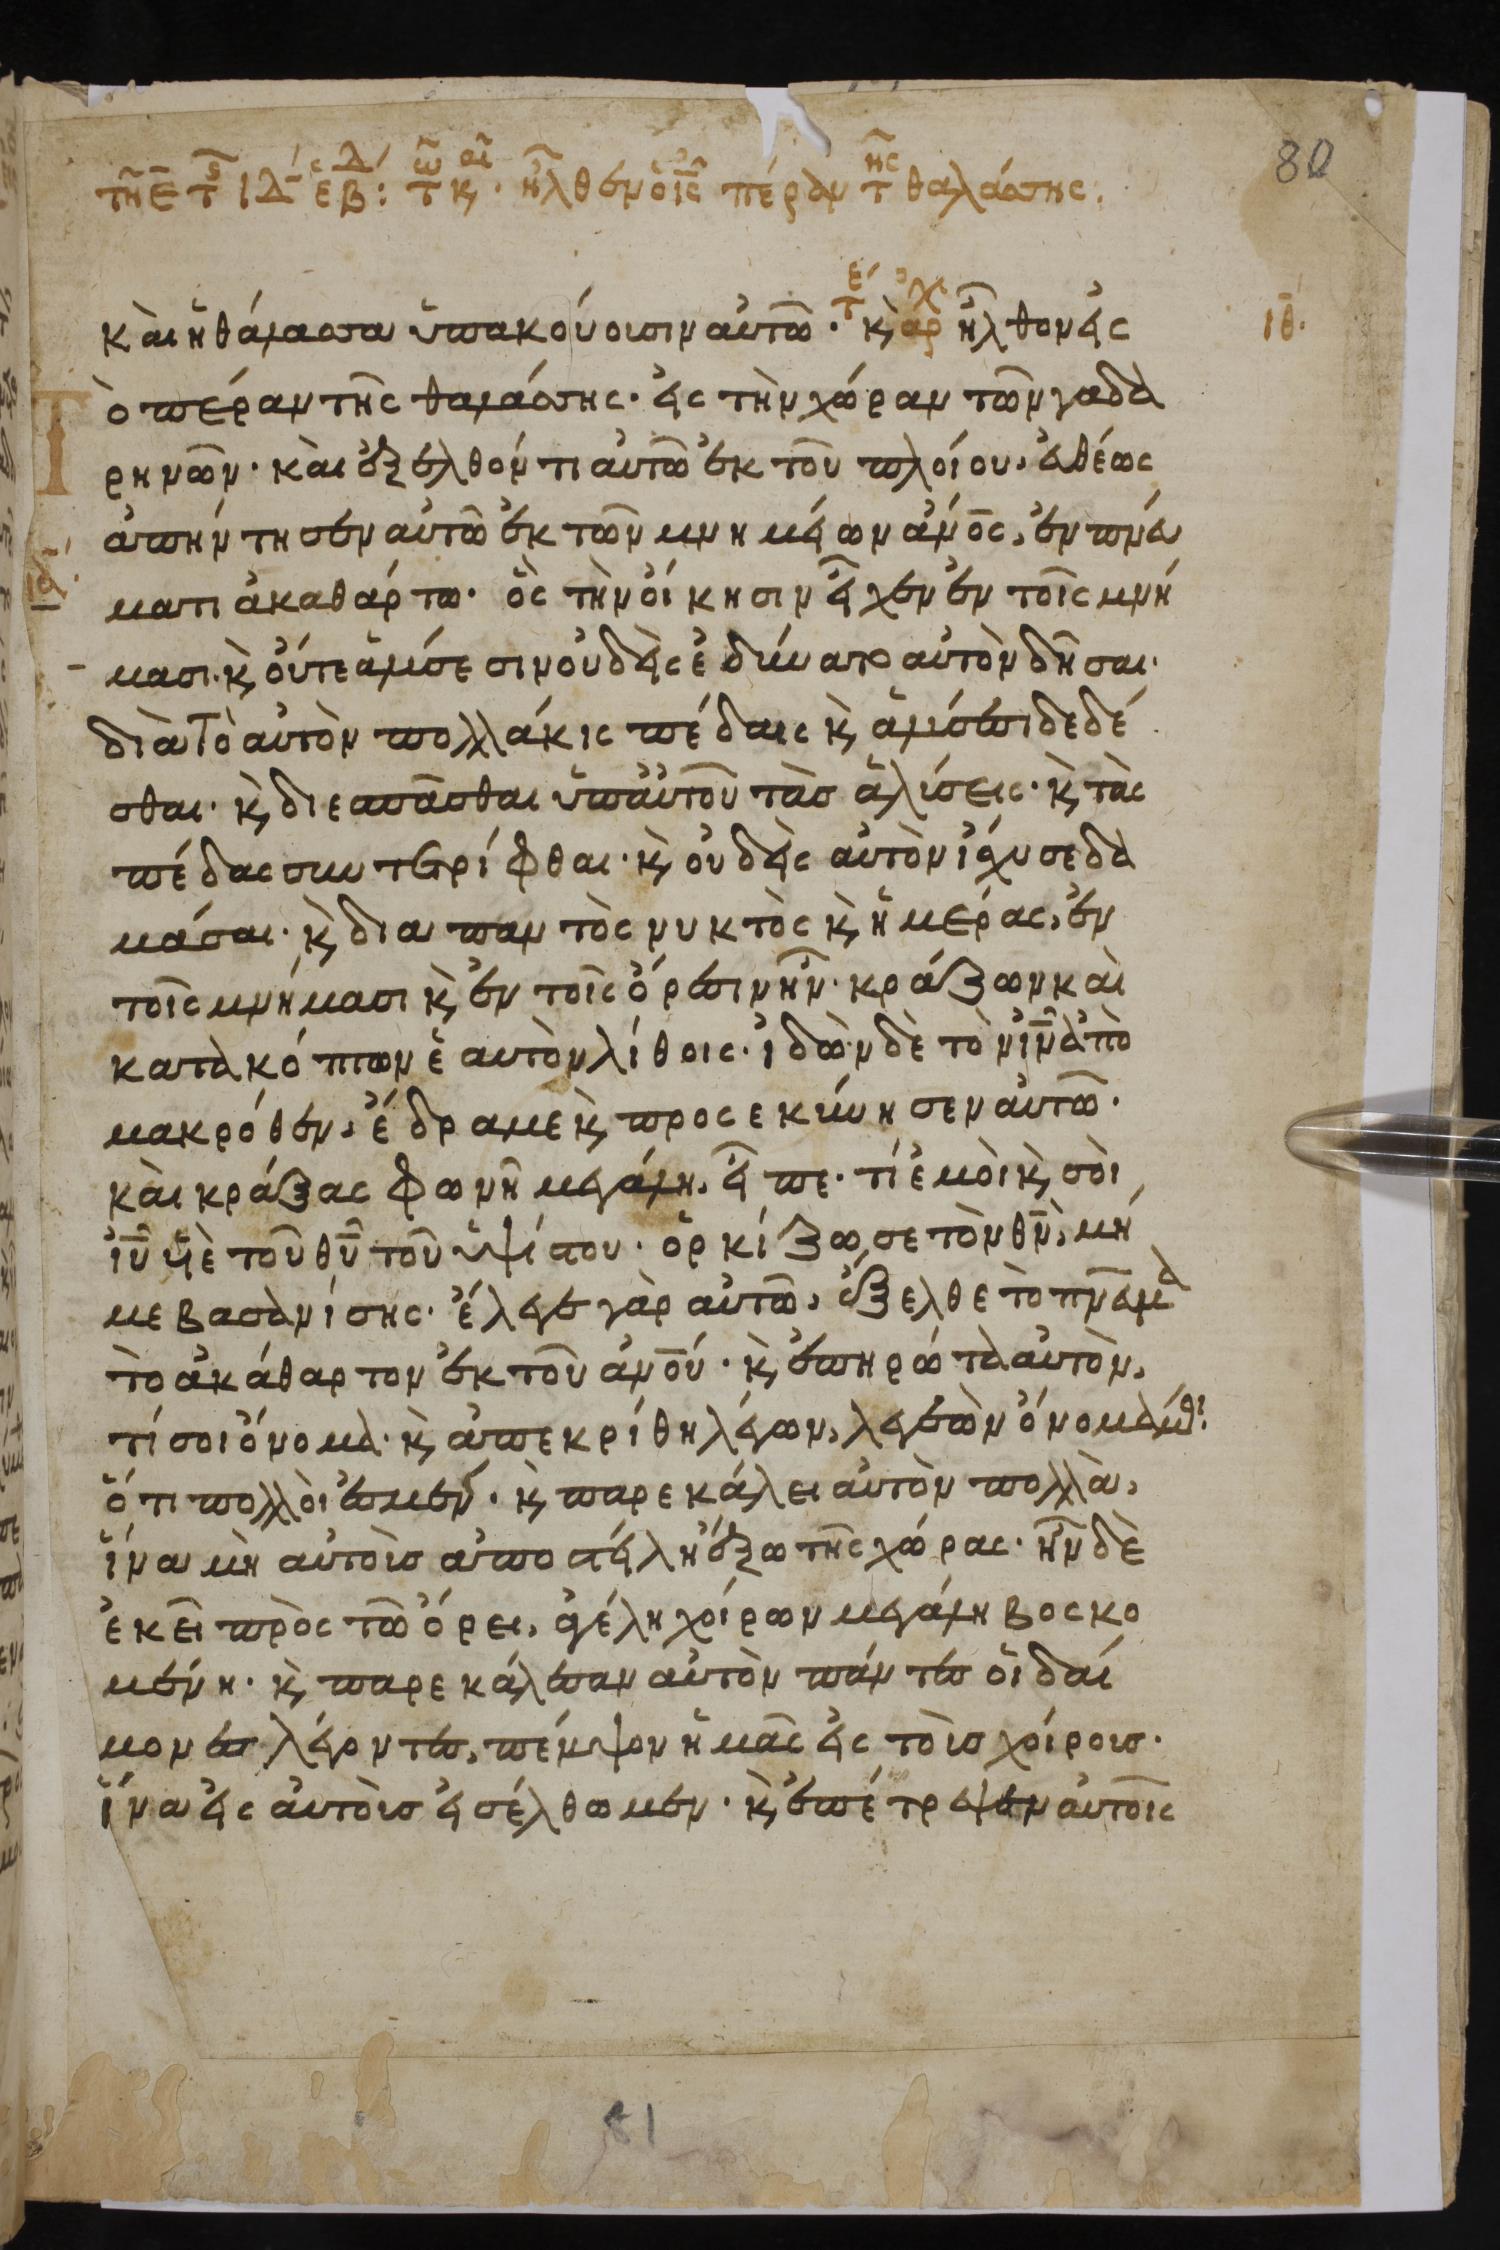 80
τῆ ε̄ τ ς ΙΔ ἑβδ: τῶ κ αι. ἦλθεν ὁ ῑς̄ πέραν τῆς θαλάσσης.
καὶ ἡ θάλασσα ὑπακούουσιν αὐτῶ. τέ κ, ἀρχ ἦλθον εἰς ιθ.
Τὸ πέραν τῆς θαλάσσης. εἰς τὴν χώραν τῶν γαδα
ρηνῶν. καὶ ἐξελθόντι αὐτῶ ἐκ τοῦ πλοίου, εὐθέως
ἀπήντησεν αὐτῶ ἐκ τῶν μνημείων ἄν̄ο̄ς, ἐν πνεύ
ματι ἀκαθάρτω. ὃς τὴν οἴκησιν εἶχεν ἐν τοῖς μνή
μασι. κ, οὔτε ἁλύσεσιν οὐδεὶς ἐδύνατο αὐτὸν δῆσαι.
διὰ τὸ αὐτὸν πολλάκις πέδαις κ, ἁλύσεσι δεδέ
σθαι. κ, διεσπᾶσθαι ὑπ' αὐτοῦ τὰσ ἁλύσεις. κ, τὰς
πέδας συντετρίφθαι. κ, οὐδεὶς αὐτὸν ἴσχυσε δα
μάσαι. κ, διαπαντὸς νυκτὸς κ, ἡμέρας, ἐν
τοῖς μνήμασι κ, ἐν τοῖς ὄρεσιν ἦν. κράζων καὶ
κατακόπτων ἑαυτὸν λίθοις. ἰδὼν δὲ τὸν ῑν̄ ἀπὸ
μακρόθεν, ἔδραμε κ, προσεκύνησεν αὐτῶ.
καὶ κράξας φωνῆ μεγάλη, εἶπε. τί ἐμοὶ κ, σοὶ
ῑῡ ῡὲ τοῦ θ̄ῡ τοῦ ὑψίστου. ὁρκίζω σε τὸν θ̄ν̄, μή
με βασανίσης. ἔλεγε γὰρ αὐτῶ, ἔξελθε τὸ πνεῦμα
τὸ ἀκάθαρτον ἐκ τοῦ ἀν̄ο̄ύ. κ, ἐπηρώτα αὐτὸν,
τί σοι ὄνομα. κ, ἀπεκρίθη λέγων, λεγεὼν ὄνομά μοι.
ὅτι πολλοὶ ἐσμέν. κ, παρεκάλει αὐτὸν πολλὰ,
ἵνα μὴ αὐτοὺσ ἀποστείλη ἔξω τῆς χώρας. ἦν δὲ
ἐκεῖ πρὸς τῶ ὄρει, ἀγέλη χοίρων μεγάλη βοσκο
μένη. κ, παρεκάλεσαν αὐτὸν πάντες οἱ δαί
μονες λέγοντες, πέμψον ἡμᾶς εἰς τοὺσ χοίρουσ.
ἵνα εἰς αὐτοὺσ εἰσέλθωμεν. κ, ἐπέτρεψεν αὐτοῖς
81